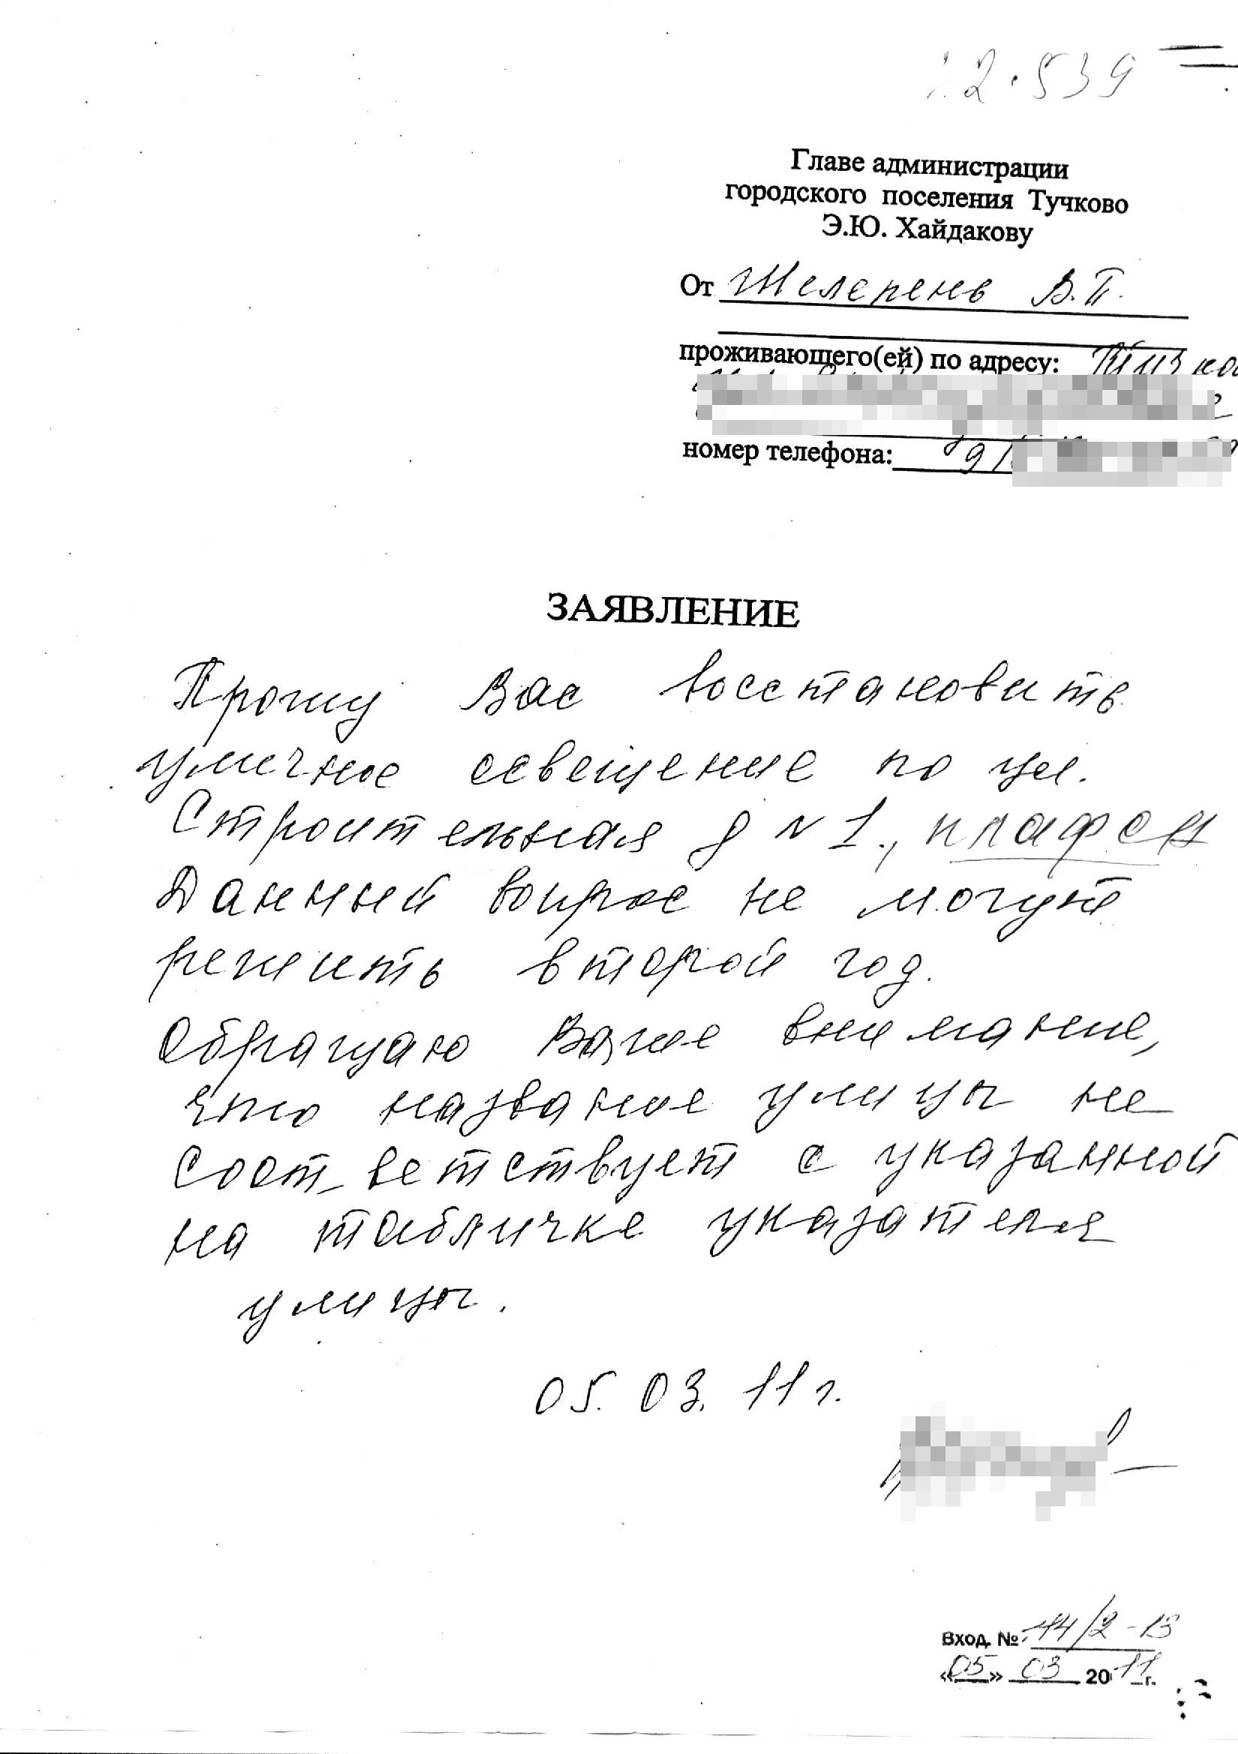 2.539
Главе администрации
городского поселения Тучково
Э.Ю. Хайдакову
От Желепень В.П.
проживающего(ей) по адресу:
номер телефона:
ЗАЯВЛЕНИЕ
Прошу Вас восстановить
уличное освещение по ул.
Строительная д №1., плафон
Данный вопрос не могут
решить второй год.
Обращаю Ваше внимание,
что название улицы не
соответствует с указанной
на табличке указателя
улицы.
05.03.11г.
Вход. № 144/2-13
«05» 03 2011 г.